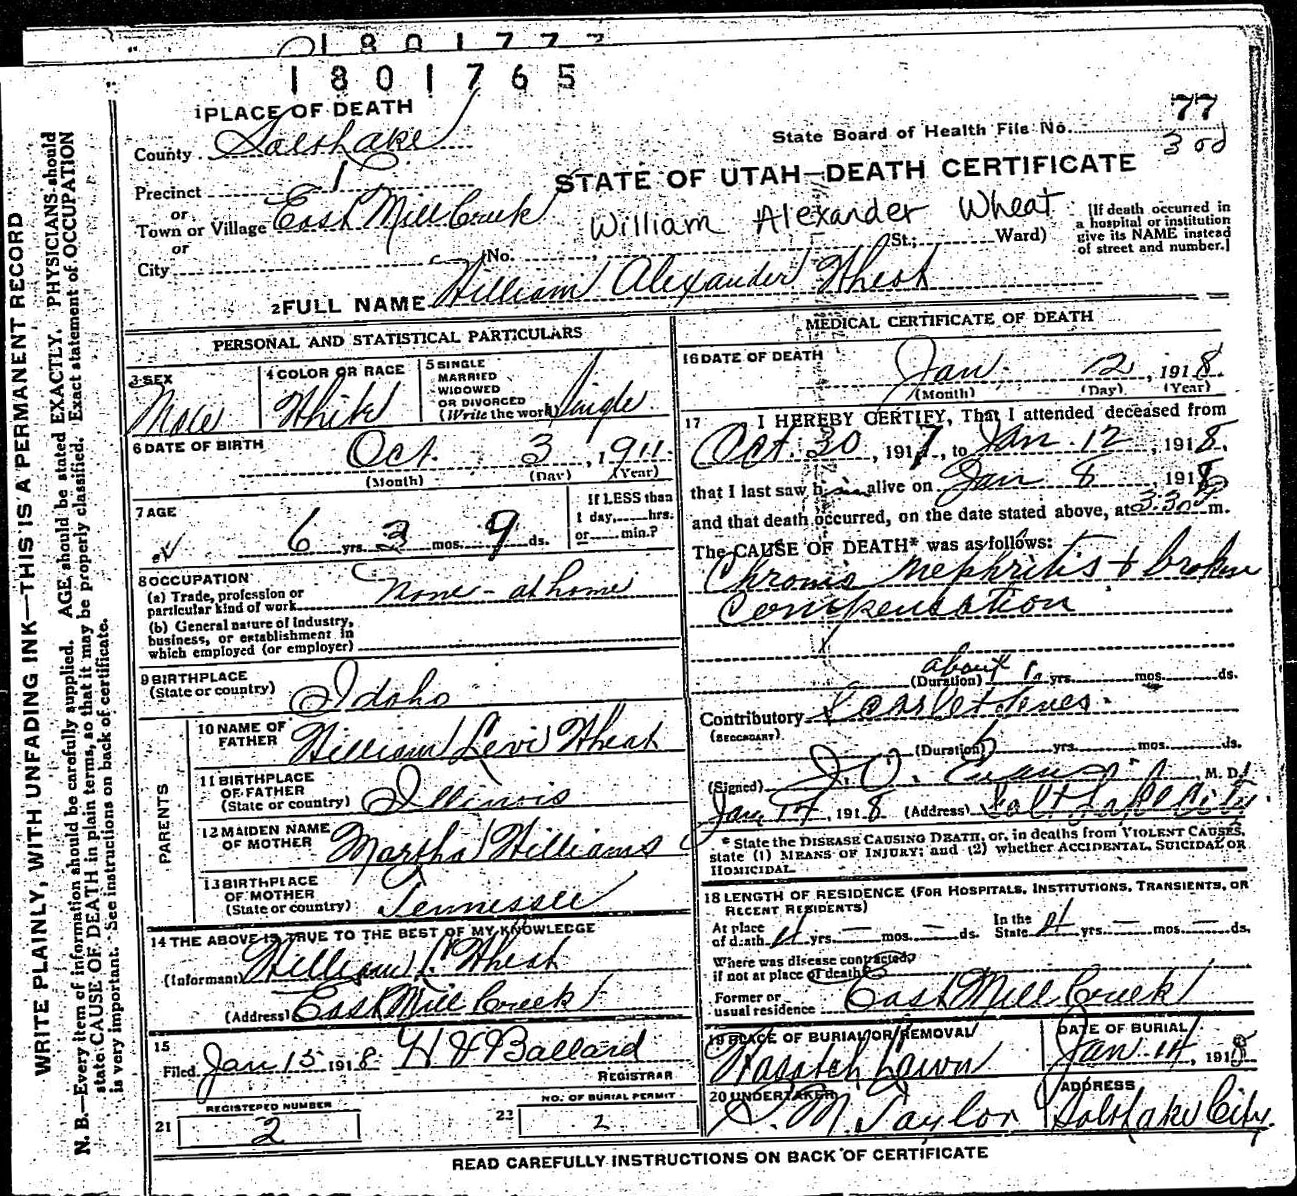 1801773
1801765
1 PLACE OF DEATH
County Salt Lake
Precinct 1
or
Town or Village East Mill Creek
or
City
77
State Board of Health File No.
STATE OF UTAH—DEATH CERTIFICATE
William Alexander Wheat
(No. St.; Ward)
[If death occurred in
a hospital or institution
give its NAME instead
of street and number.]
2 FULL NAME William Alexander Wheat
PERSONAL AND STATISTICAL PARTICULARS
3 SEX
Male
4 COLOR OR RACE
White
5 SINGLE
MARRIED
WIDOWED
OR DIVORCED
(Write the word) Single
6 DATE OF BIRTH
Oct. 3, 1911.
(Month) (Day) (Year)
7 AGE
6 yrs. 3 mos. 9 ds.
If LESS than
1 day, hrs.
or min.?
8 OCCUPATION
(a) Trade, profession or
particular kind of work None - at home
(b) General nature of Industry,
business, or establishment in
which employed (or employer)
9 BIRTHPLACE
(State or country) Idaho
PARENTS
10 NAME OF
FATHER William Levi Wheat
11 BIRTHPLACE
OF FATHER
(State or country) Illinois
12 MAIDEN NAME
OF MOTHER Martha Williams
13 BIRTHPLACE
OF MOTHER
(State or country) Tennessee
14 THE ABOVE IS TRUE TO THE BEST OF MY KNOWLEDGE
(Informant) William L. Wheat
(Address) East Mill Creek
15
Filed Jan 15 1918. H J Ballard
REGISTRAR
REGISTERED NUMBER
21 2
NO. OF BURIAL PERMIT
23 2
MEDICAL CERTIFICATE OF DEATH
16 DATE OF DEATH
Jan. 12, 1918.
(Month) (Day) (Year)
17 I HEREBY CERTIFY, That I attended deceased from
Oct. 30, 1917, to Jan. 12, 1918.
that I last saw him alive on Jan 8 1918
and that death occurred, on the date stated above, at 3:30 p m.
The CAUSE OF DEATH* was as follows:
Chronic nephritis + broken
compensation
about
(Duration) 1 yrs. mos. ds.
Contributory Scarlet Fever.
(SECONDARY)
(Duration) yrs. mos. ds.
(Signed) J. O. Evans, M. D.
Jan 14 1918 (Address) Salt Lake City
* State the DISEASE CAUSING DEATH, or, in deaths from VIOLENT CAUSES,
state (1) MEANS OF INJURY; and (2) whether ACCIDENTAL, SUICIDAL OR
HOMICIDAL.
18 LENGTH OF RESIDENCE (FOR HOSPITALS, INSTITUTIONS, TRANSIENTS, OR
RECENT RESIDENTS)
At place
of death yrs. — mos. — ds.
In the
State yrs. — mos. — ds.
Where was disease contracted,
if not at place of death?
Former or
usual residence East Mill Creek
19 PLACE OF BURIAL OR REMOVAL
Wasatch Lawn
DATE OF BURIAL
Jan. 14, 1918
20 UNDERTAKER
S. M. Taylor
ADDRESS
Salt Lake City.
READ CAREFULLY INSTRUCTIONS ON BACK OF CERTIFICATE
WRITE PLAINLY, WITH UNFADING INK—THIS IS A PERMANENT RECORD
N. B.—Every item of information should be carefully supplied. AGE should be stated EXACTLY. PHYSICIANS should
state CAUSE OF DEATH in plain terms, so that it may be properly classified. Exact statement of OCCUPATION
is very important. See instructions on back of certificate.